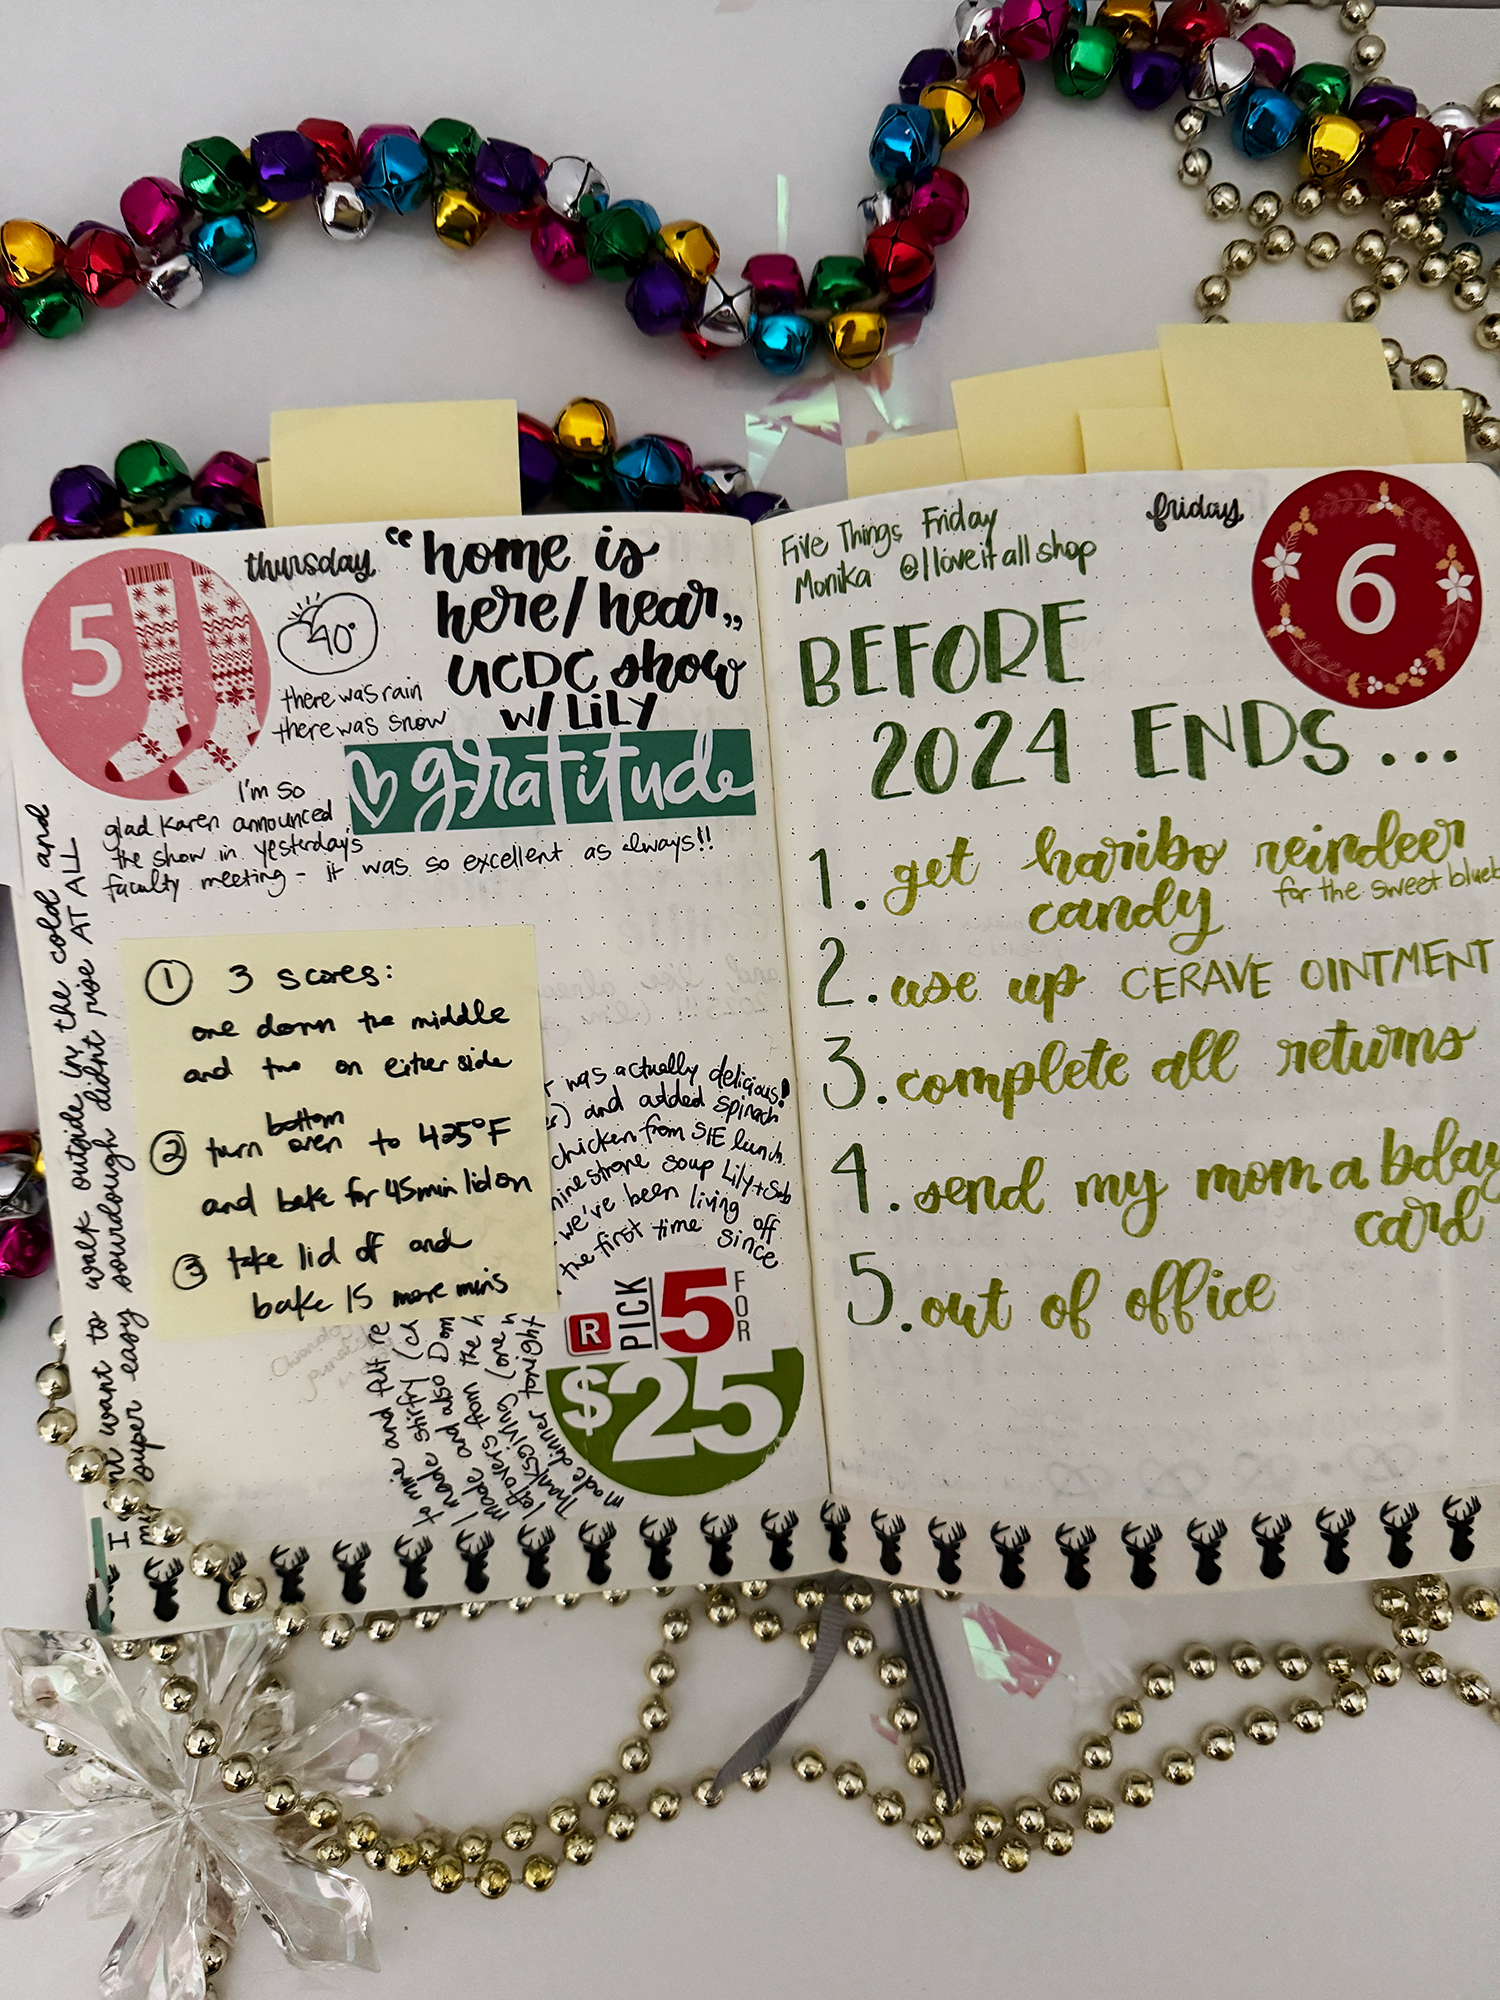 5
thursday
40°
there was rain
there was snow
"home is
here/hear"
UCDC show
w/ LiLY
gratitude
I'm so
glad Karen announced
the show in yesterday's
faculty meeting - it was so excellent as always!!
want to walk outside in the cold and
super easy sourdough didnt rise AT ALL
① 3 scores:
one down the middle
and two on either side
② turn bottom oven to 425°F
and bake for 45min lid on
③ take lid off and
bake 15 more mins
was actually delicious!
and added spinach
chicken from SIE lunch.
soup Lily+Seb
we've been living off
the first time since
made dinner tonight
Thanksgiving (one
leftovers from the
made and also Dom
I made stirfry (ch
to mine and put re
R PICK 5 FOR
$25
Five Things Friday
Monika @lloveitallshop
friday
6
BEFORE
2024 ENDS...
1. get haribo reindeer
candy for the sweet blueb
2. use up CERAVE OINTMENT
3. complete all returns
4. send my mom a bday
card
5. out of office